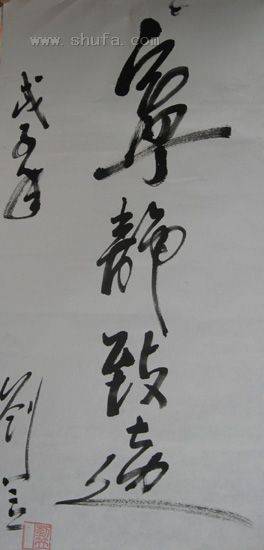 www.shufa.com
寧靜致遠
戊子年
劉